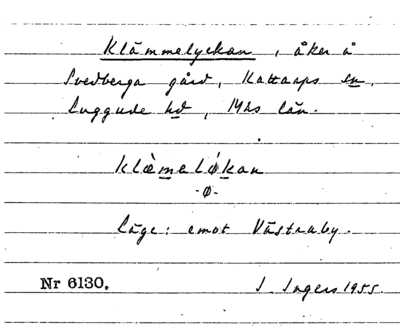 Klämmelyckan, åker å
Svedberga gård, Kattarps sn.
Luggude hd, Mhs län.
klèmeløkan
-ø-
Läge: emot Västraby.
Nr 6130. I. Ingers 1955.